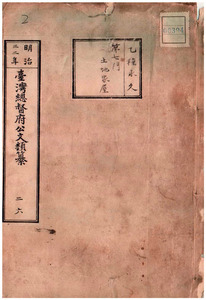 2
乙種永久
第七門
土地家屋
明治
三二年
臺灣總督府公文類纂
二六